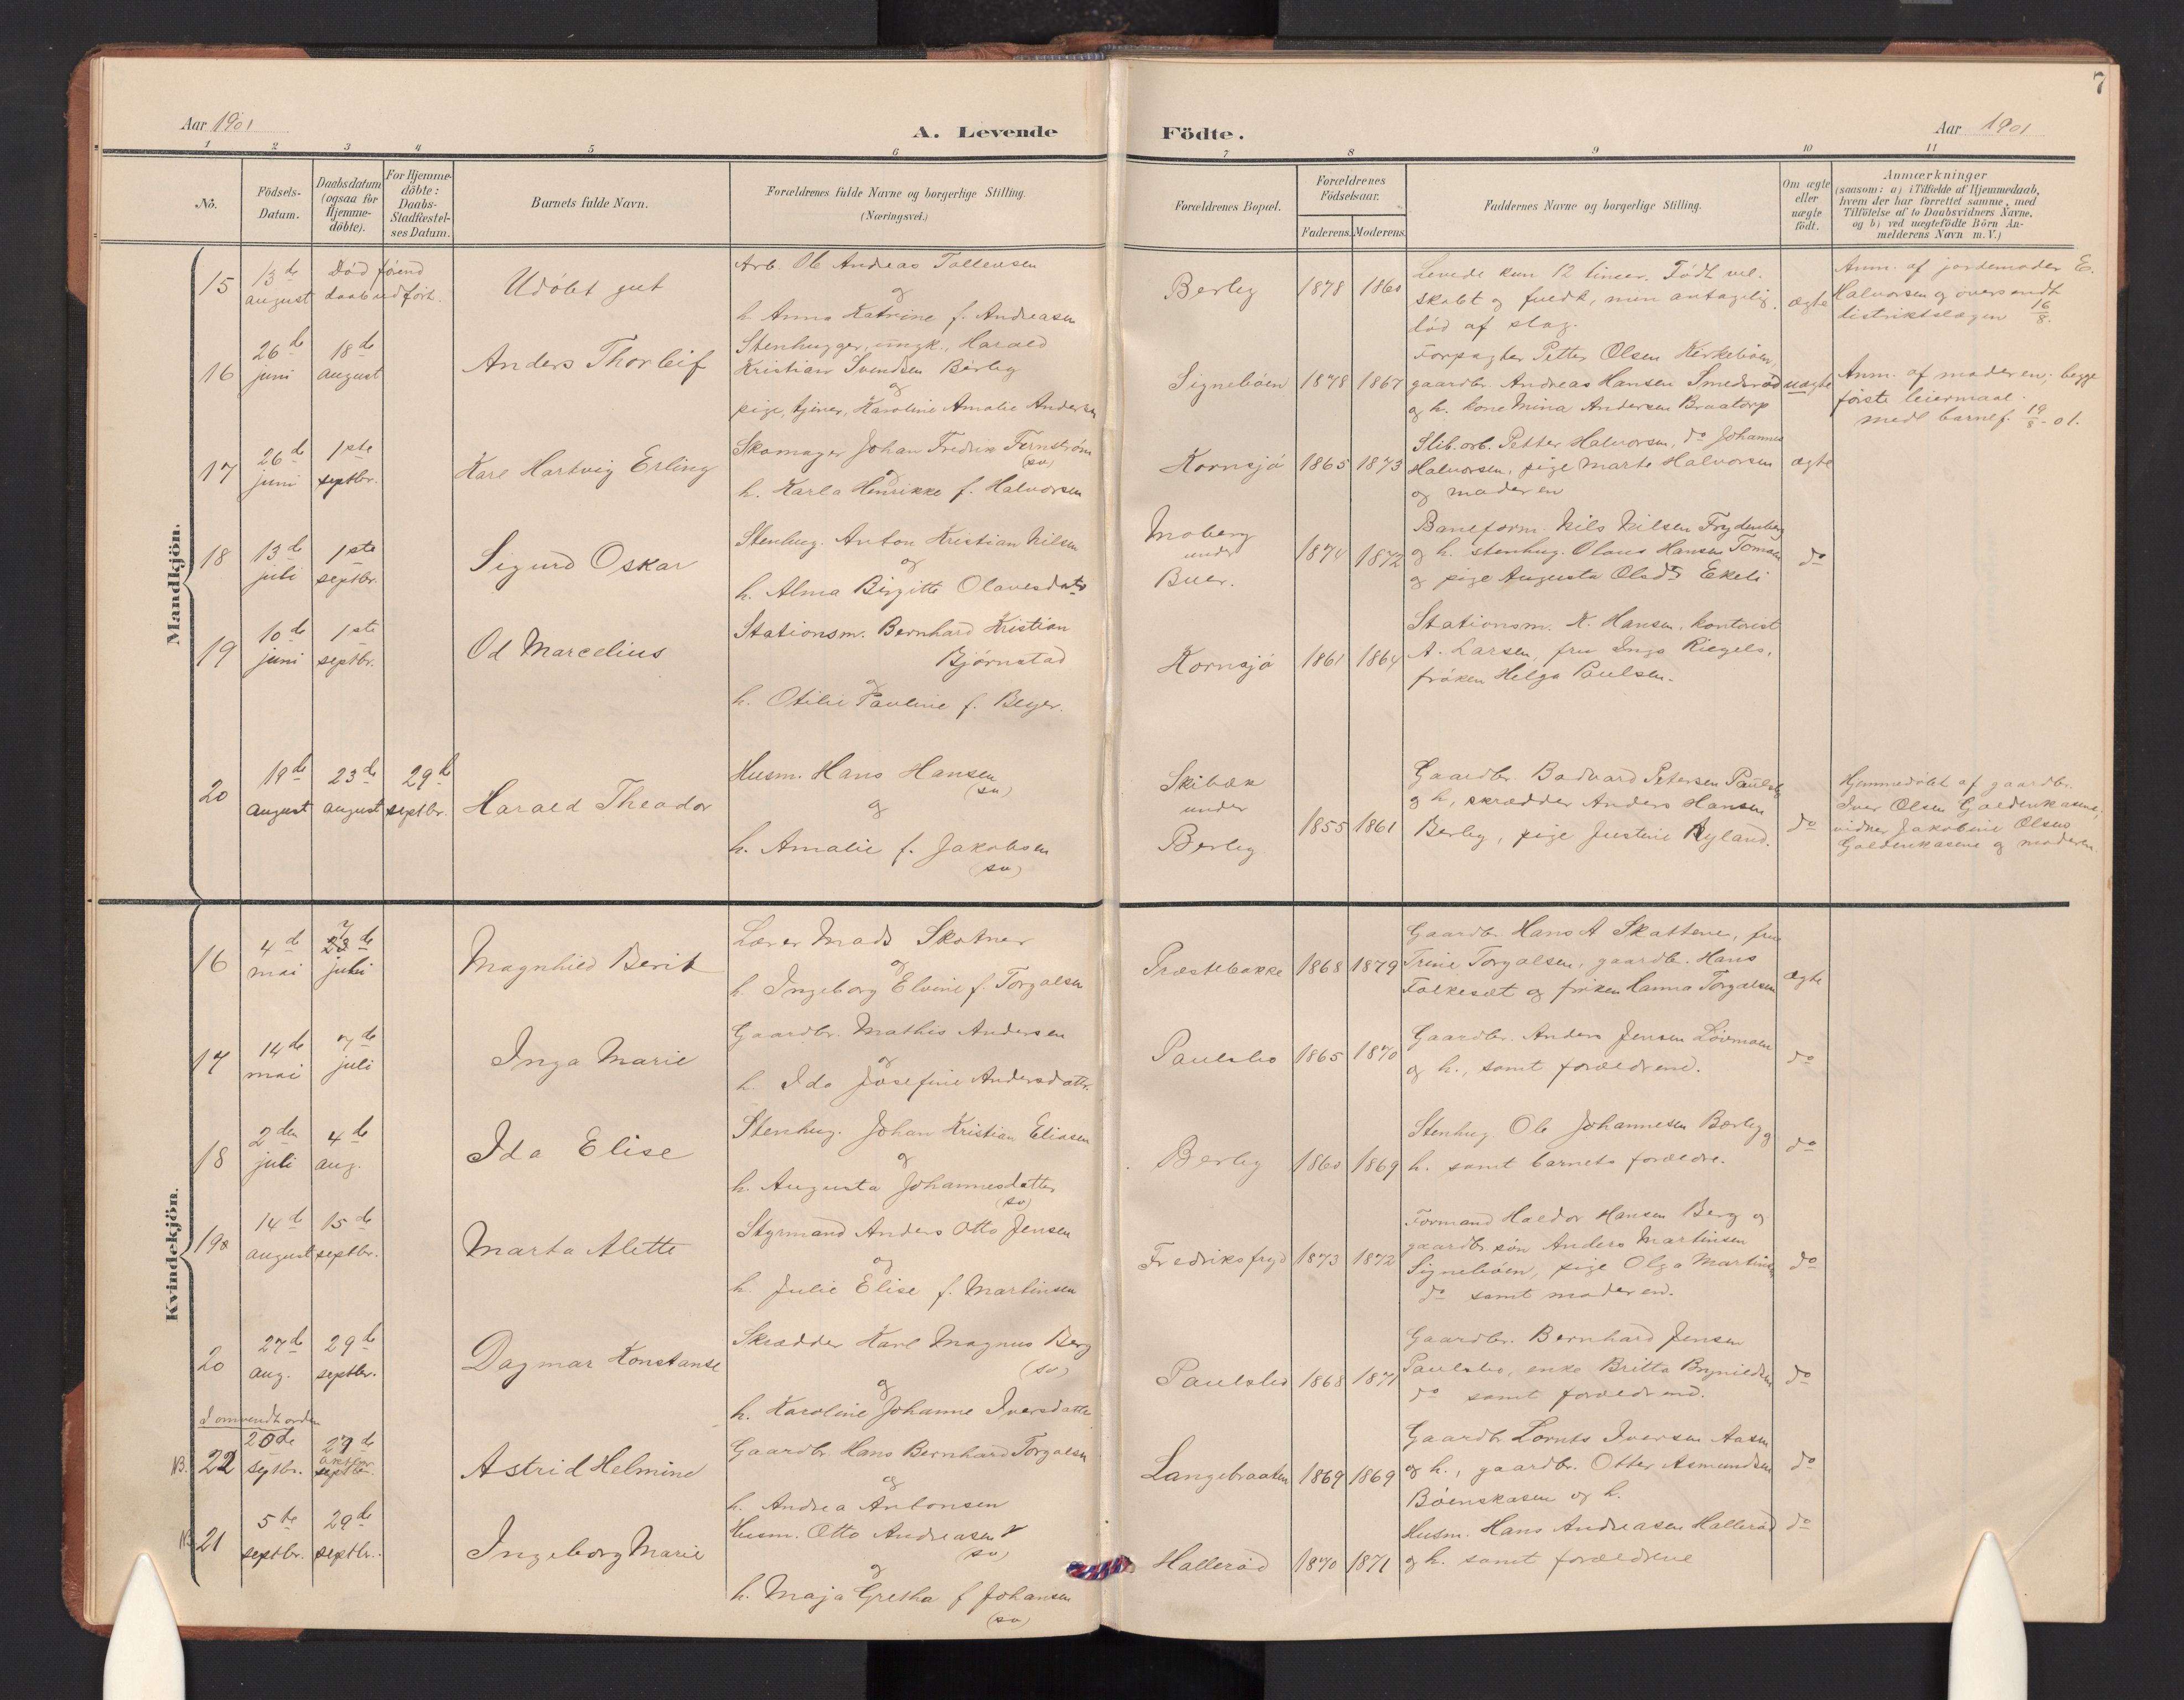 7
Aar 1901
A. Levende
Födte.
Aar 1901
1 2 3 4 5 6 7 8 9 10 11
No.
Födsels-
Datum.
Daabsdatum
(ogsaa for
Hjemme-
döbte).
For Hjemme-
döbte:
Daabs-
Stadfæstel-
ses Datum.
Barnets fulde Navn.
Forældrenes fulde Navne og borgerlige Stilling.
(Næringsvei.)
Forældrenes Bopæl.
Forældrenes
Födselsaar.
Faderens. Moderens.
Faddernes Navne og borgerlige Stilling.
Om ægte
eller
uægte
födt.
Anmærkninger
(saasom: a) i Tilfælde af Hjemmedaab,
hvem der har forrettet samme, med
Tilföielse af to Daabsvidners Navne,
og b) ved uægtefödte Börn An-
melderens Navn m. V.)
Mandkjön.
15
13de
august
Död förend
daab udfört.
Udöbt gut
Arb. Ole Andreas Tollevsen
og
h. Anna Katrine f. Andreasen
Berby
1878 1860
Levede kun 12 timer. Födt vel-
skabt og fuldt, men antagelig
död af slag.
ægte
Anm. af jordemoder E.
Halvorsen og oversendt
distriktslægen 16/8.
16
26de
juni
18de
august
Anders Thorleif
Stenhugger, ungk., Harald
Kristian Svendsen Berby
og
pige, tjener, Karoline Amalie Andersen
Signeböen
1878 1867
Forpagter Petter Olsen Kirkeböen,
gaardbr. Andreas Hansen Smedsröd
og h. kone Mina Andersen Braatorp
uægte
Anm. af moderen; begge
förste leiermaal.
Medl barnef. 19/8-01.
17
26de
juni
1ste
septbr.
Karl Hartvig Erling
Skomager Johan Fredrik Fernström
(sv)
og
h. Karla Henrikke f. Halvorsen
Kornsjö
1865 1873
Slib.arb. Petter Halvorsen, do Johannes
Halvorsen, pige Marte Halvorsen
og moderen
ægte
18
13de
juli
1ste
septbr.
Sigurd Oskar
Stenhug. Anton Kristian Nilsen
og
h. Alma Birgitte Olavesdatr
Moberg
under
Buer.
1874 1872
Baneform. Nils Nilsen Frydenberg
og h. stenhug. Olaus Hansen Tomasen
og pige Augusta Olsdr Ekeli
do
19
10de
juni
1ste
septbr.
Od Marcelius
Stationsm. Bernhard Kristian
Björnstad
og
h. Otilie Pauline f. Beyer.
Kornsjö
1861 1864
Stationsm. K. Hansen, kontorist
A. Larsen, fru Inga Riegels,
fröken Helga Paulsen.
20
19de
august
23de
august
29de
septbr.
Harald Theodor
Husm. Hans Hansen
(sv)
og
h. Amalie f. Jakobsen
(sv)
Skibæk
under
Berby
1855 1861
Gaardbr. Bodvard Petersen Paulsbo
og h, skrædder Anders Hansen
Berby, pige Justine Ryland.
do
Hjemmedöbt af gaardbr.
Iver Olsen Goldenkasene;
vidner Jakobine Olsens
Goldenkasene og moderen.
Kvindekjön.
16
4de
mai
28de
juli
Magnhild Berit
Lærer Mads Skotner
og
h. Ingeborg Elvine f. Torgalsen
Præstebakke
1868 1879
Gaardbr. Hans A Skattene, fru
Trine Torgalsen, gaardbr. Hans
Folkesæt og fröken Hanna Torgalsen
ægte
17
14de
mai
7de
juli
Inga Marie
Gaardbr. Mathis Andersen
og
h. Ida Josefine Andersdattr.
Paulsbo
1865 1870
Gaardbr. Anders Jensen Lövmoen
og h., samt forældrene.
do
18
2den
juli
4de
aug.
Ida Elise
Stenhug. Johan Kristian Eliasen
og
h. Augusta Johannesdatter
(sv)
Berby
1860 1869
Stenhug. Ole Johannesen Berby og
h. samt barnets forældre.
do
19
14de
august
15de
septbr.
Marta Alette
Styrmand Anders Otto Jensen
og
h. Julie Elise f. Martinsen
Fredriksfryd
1873 1872
Formand Haldor Hansen Berg og
gaardbr.sön Anders Martinsen
Signeböen, pige Olga Martinsen
do samt moderen.
do
20
27de
aug.
29de
septbr.
Dagmar Konstanse
Skrædder Karl Magnus Berg
(sv)
og
h. Karoline Johanne Iversdatter
Paulsbo
1868 1871
Gaardbr. Bernhard Jensen
Paulsbo, enke Britta Brynildsen
do samt forældrene.
do
I omvendt orden
NB. 22
20de
septbr.
27de
oktbr.
septbr.
Astrid Helmine
Gaardbr. Hans Bernhard Torgalsen
og
h. Andrea Antonsen
Langebraaten
1869 1869
Gaardbr. Lornts Iversen Aasen
og h., gaardbr. Otter Asmundsen
Böenskasen og h.
do
NB 21
5te
septbr.
29de
septbr.
Ingeborg Marie
Husm. Otto Andreasen
(sv)
og
h. Maja Gretha f Johansen
(sv)
Halleröd
1870 1871
Husm. Hans Andreasen Halleröd
og h. samt forældrene
do